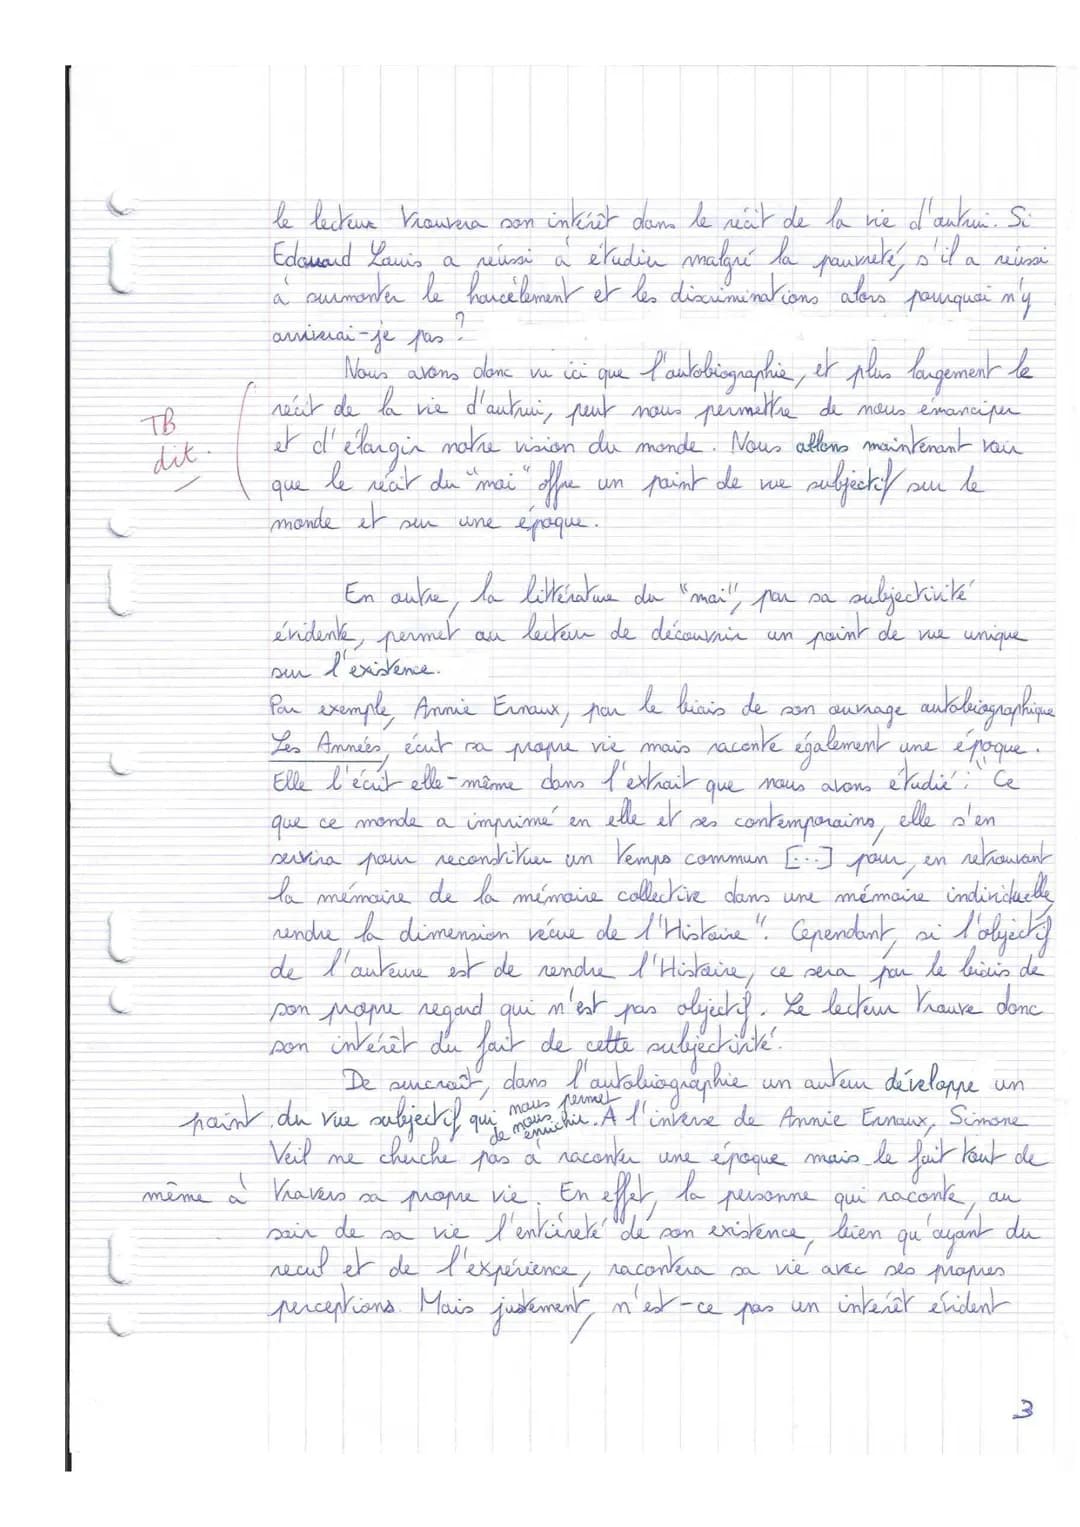 le lecteur trouvera son intérêt dans le récit de la vie d'autrui. Si
Edouard Louis a réussi à étudier malgré la pauvreté, s'il a réussi
à surmonter le harcèlement et les discriminations alors pourquoi n'y
arriverai-je pas ?
Nous avons donc vu ici que l'autobiographie, et plus largement le
récit de la vie d'autrui, peut nous permettre de nous émanciper
TB
dit.
et d'élargir notre vision du monde. Nous allons maintenant voir
que le récit du "moi" offre un point de vue subjectif sur le
monde et sur une époque.
En outre, la littérature du "moi", par sa subjectivité
évidente, permet au lecteur de découvrir un point de vue unique
sur l'existence.
Par exemple, Annie Ernaux, par le biais de son ouvrage autobiographique
Les Années, écrit sa propre vie mais raconte également une époque.
Elle l'écrit elle-même dans l'extrait que nous avons étudié : "Ce
que ce monde a imprimé en elle et ses contemporains, elle s'en
servira pour reconstituer un temps commun [...] pour, en retrouvant
la mémoire de la mémoire collective dans une mémoire individuelle,
rendre la dimension vécue de l'Histoire". Cependant, si l'objectif
de l'auteure est de rendre l'Histoire, ce sera par le biais de
son propre regard qui n'est pas objectif. Le lecteur trouve donc
son intérêt du fait de cette subjectivité.
De surcroît, dans l'autobiographie un auteur développe un
point du vue subjectif qui nous permet de nous enrichir. A l'inverse de Annie Ernaux, Simone
Veil ne cherche pas à raconter une époque mais le fait tout de
même à travers sa propre vie. En effet, la personne qui raconte, au
soir de sa vie l'entièreté de son existence, bien qu'ayant du
recul et de l'expérience, racontera sa vie avec ses propres
perceptions. Mais justement, n'est-ce pas un intérêt évident
3